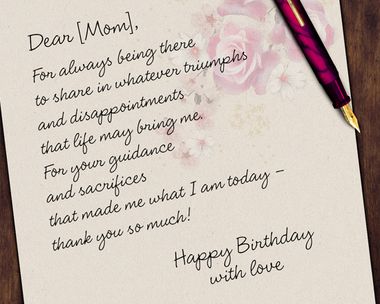 Dear [Mom],
For always being there
to share in whatever triumphs
and disappointments
that life may bring me.
For your guidance
and sacrifices
that made me what I am today –
thank you so much!
Happy Birthday
with love